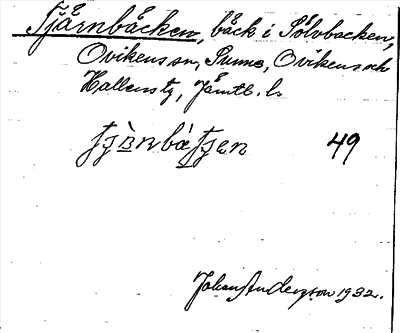 Tjärnbäcken, bäck i Sölvbacken,
Ovikens sn, Sunne, Ovikens och
Hallens tg, Jämtl. l.
49
Johan Anderzson 1932.